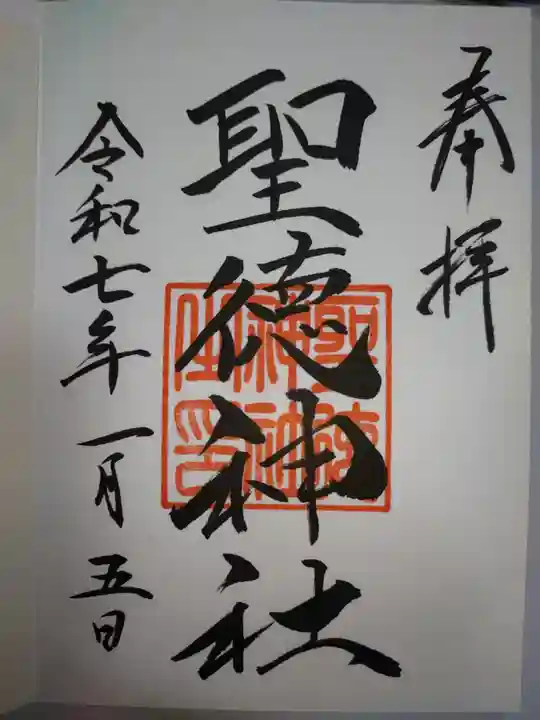 奉拝
聖徳神社
令和七年一月五日